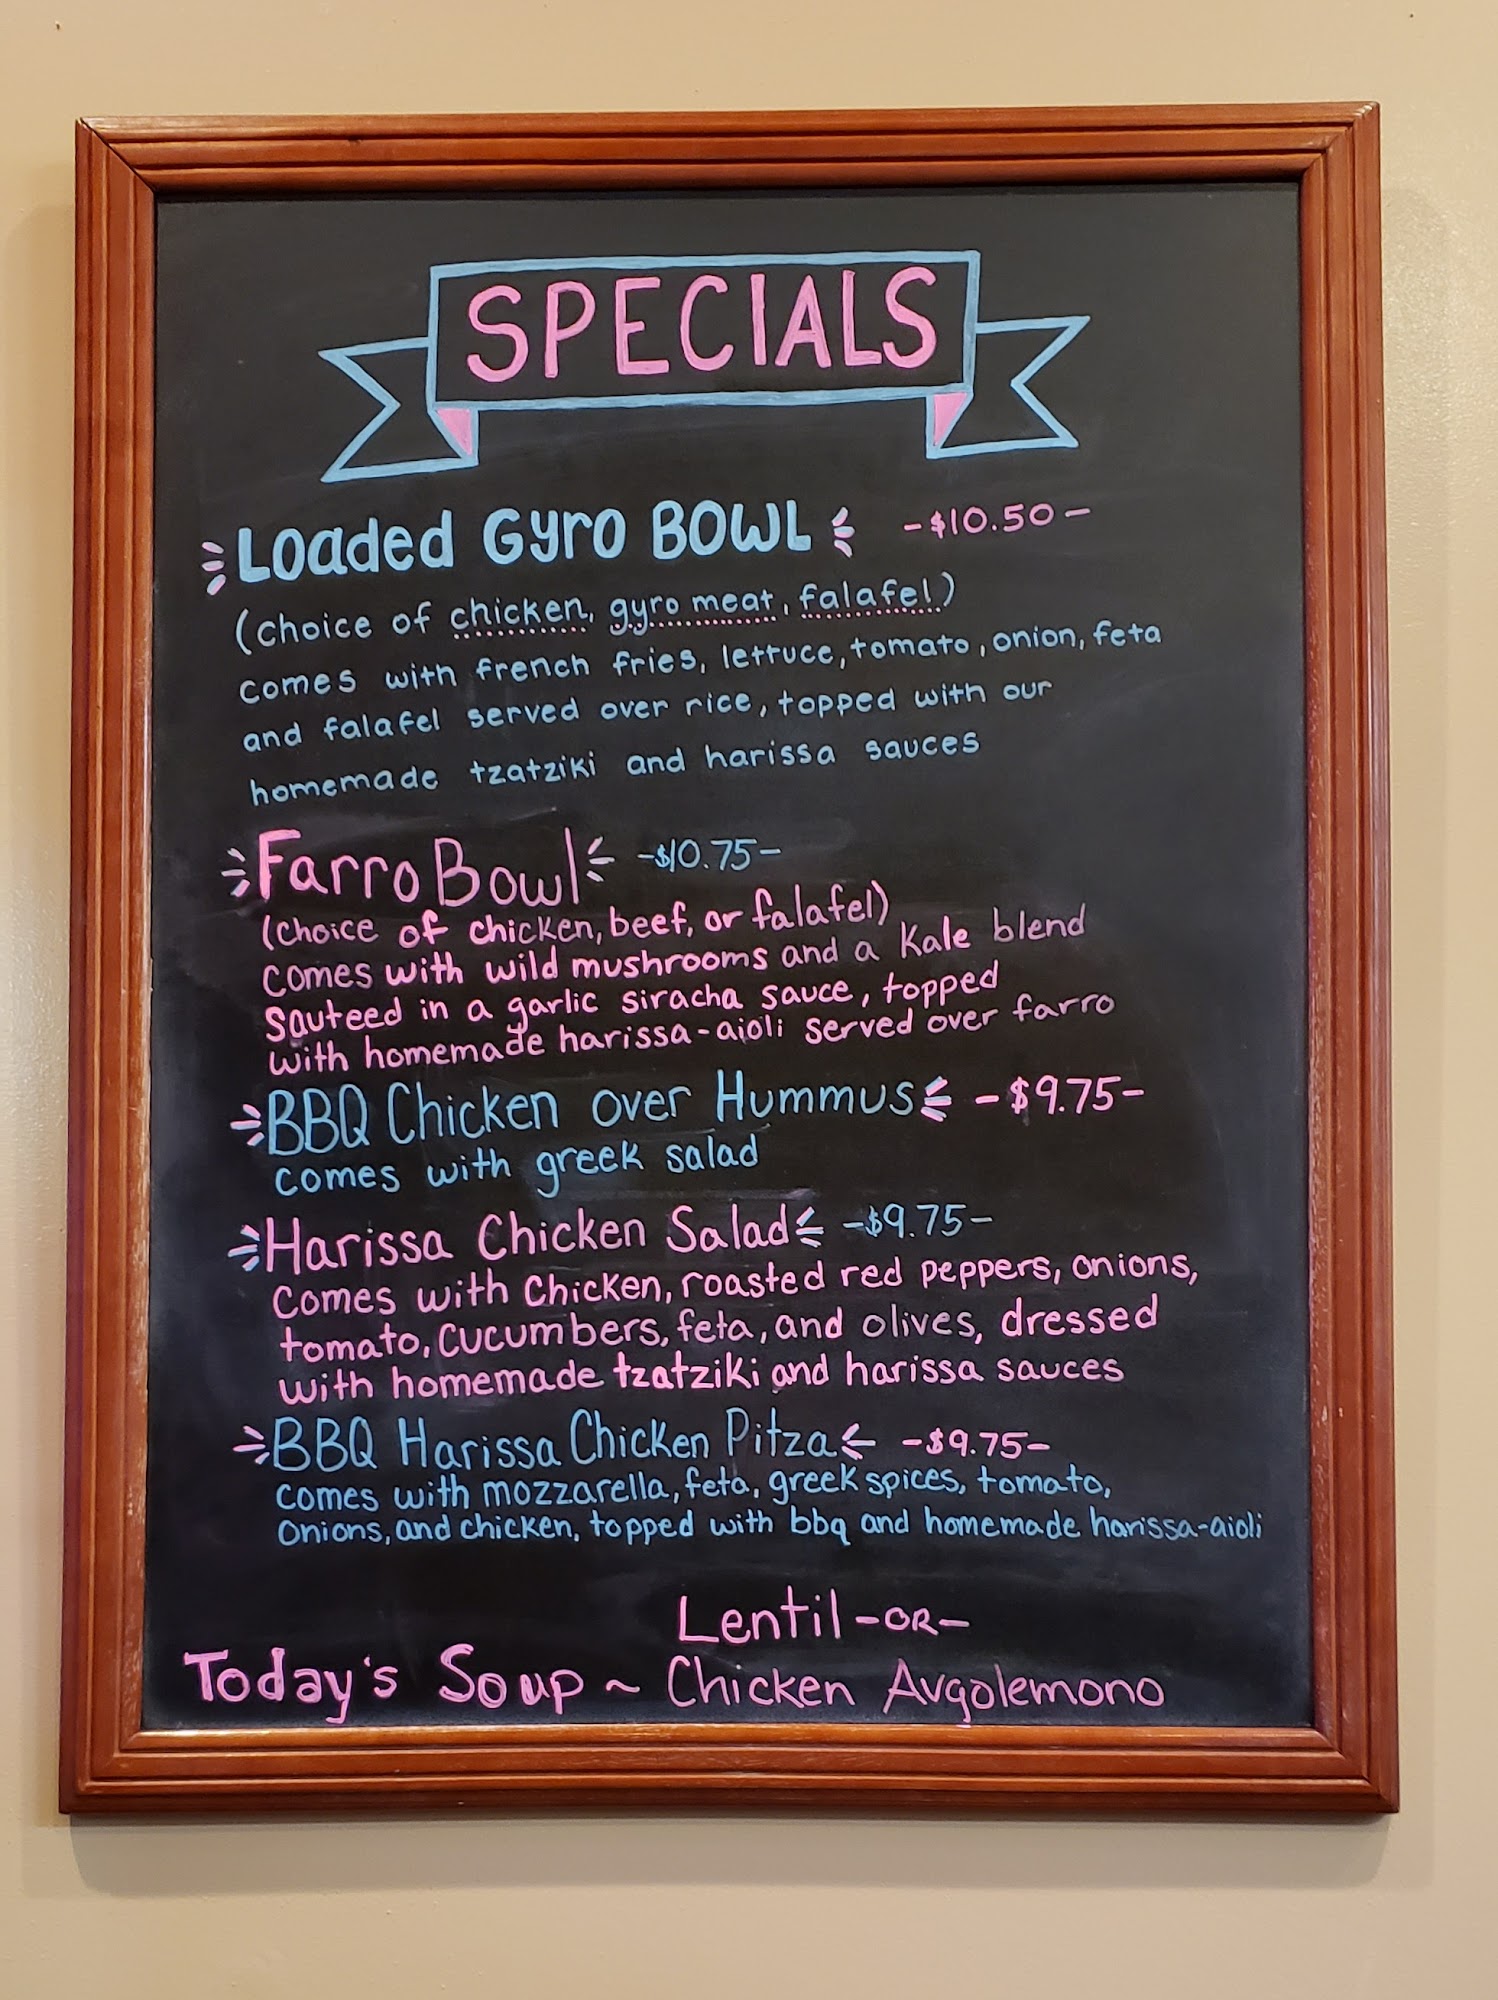 SPECIALS
Loaded Gyro BOWL -$10.50-
(choice of chicken, gyro meat, falafel)
comes with french fries, lettuce, tomato, onion, feta
and falafel served over rice, topped with our
homemade tzatziki and harissa sauces
Farro Bowl -$10.75-
(choice of chicken, beef, or falafel)
comes with wild mushrooms and a Kale blend
Sauteed in a garlic siracha sauce, topped
with homemade harissa-aioli served over farro
BBQ Chicken over Hummus -$9.75-
comes with greek salad
Harissa Chicken Salad -$9.75-
Comes with Chicken, roasted red peppers, onions,
tomato, cucumbers, feta, and olives, dressed
with homemade tzatziki and harissa sauces
BBQ Harissa Chicken Pitza -$9.75-
comes with mozzarella, feta, greek spices, tomato,
onions, and chicken, topped with bbq and homemade harissa-aioli
Lentil -OR-
Today's Soup ~ Chicken Avgolemono